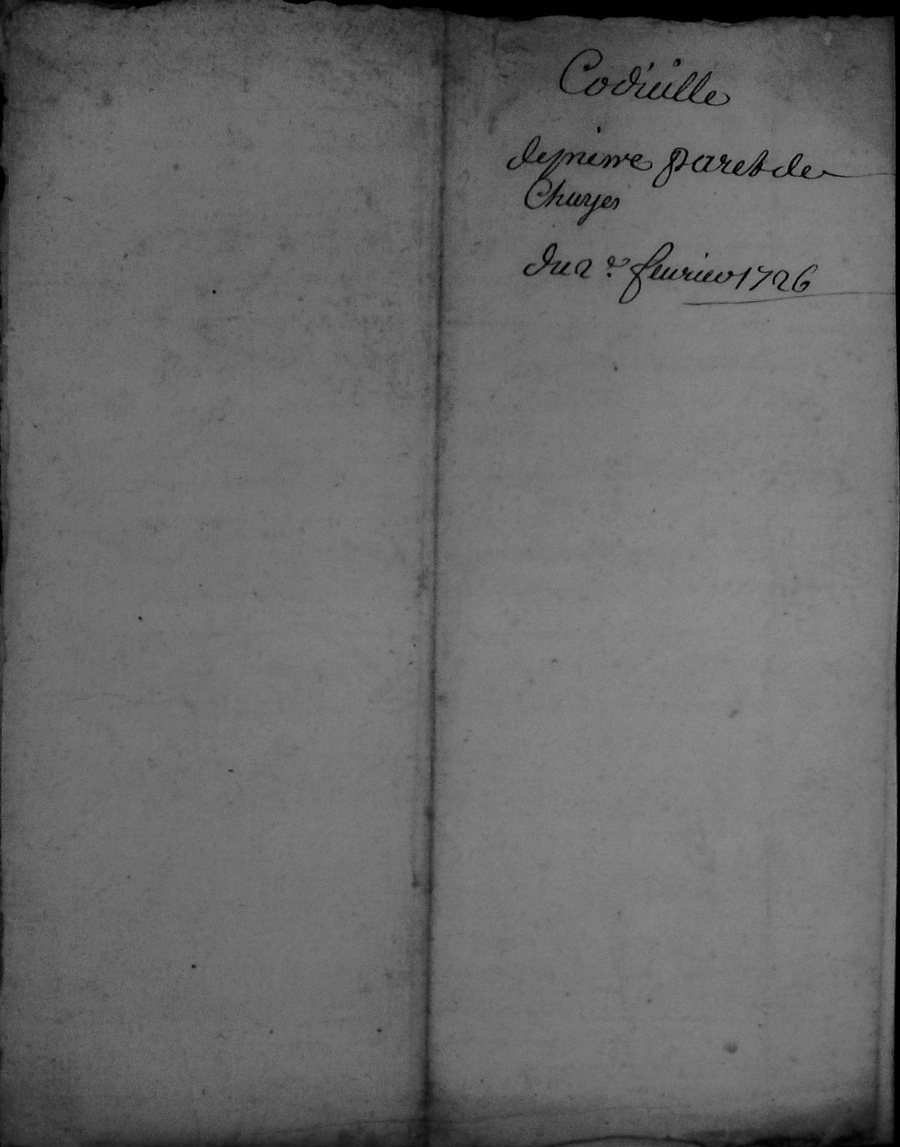 Codicille
de pierre paret de
Chuyes
du 2e feurier 1726